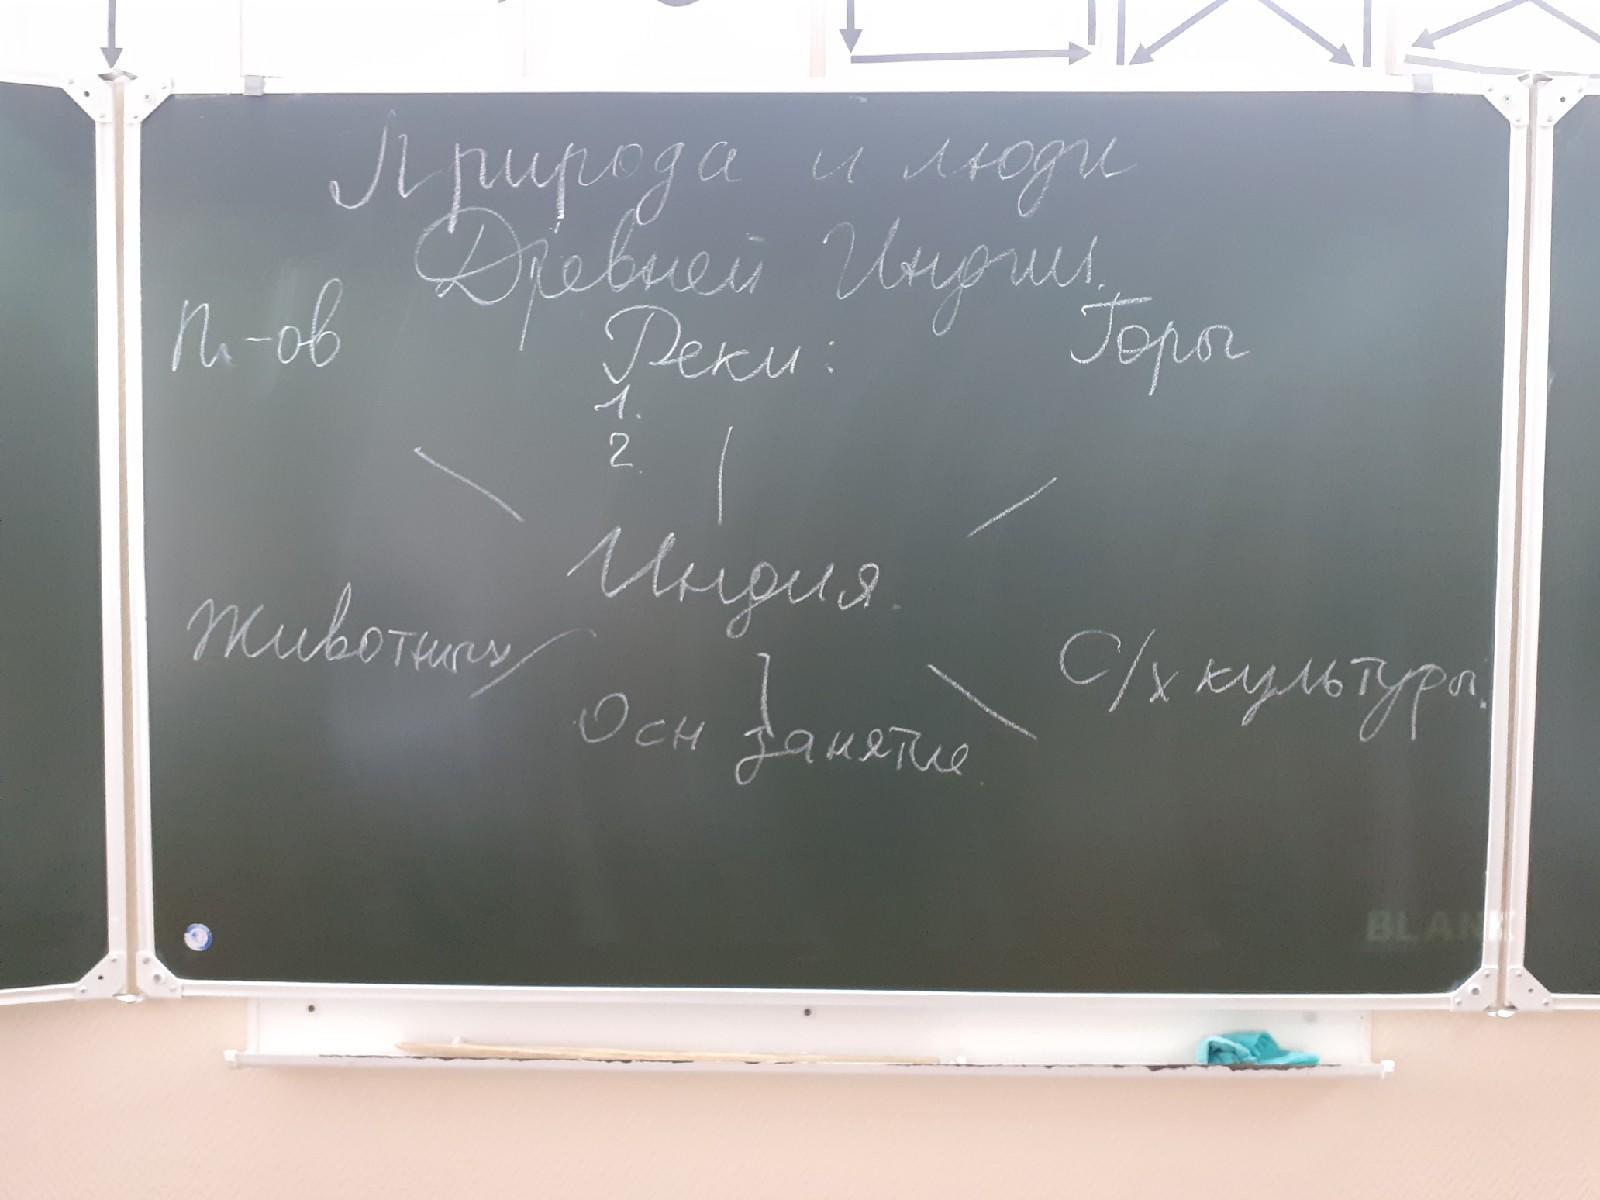 Природа и люди
Древней Индии.
П-ов Реки: Горы
1.
2.
Индия.
Животных С/х культуры.
Осн занятие.
BLANK